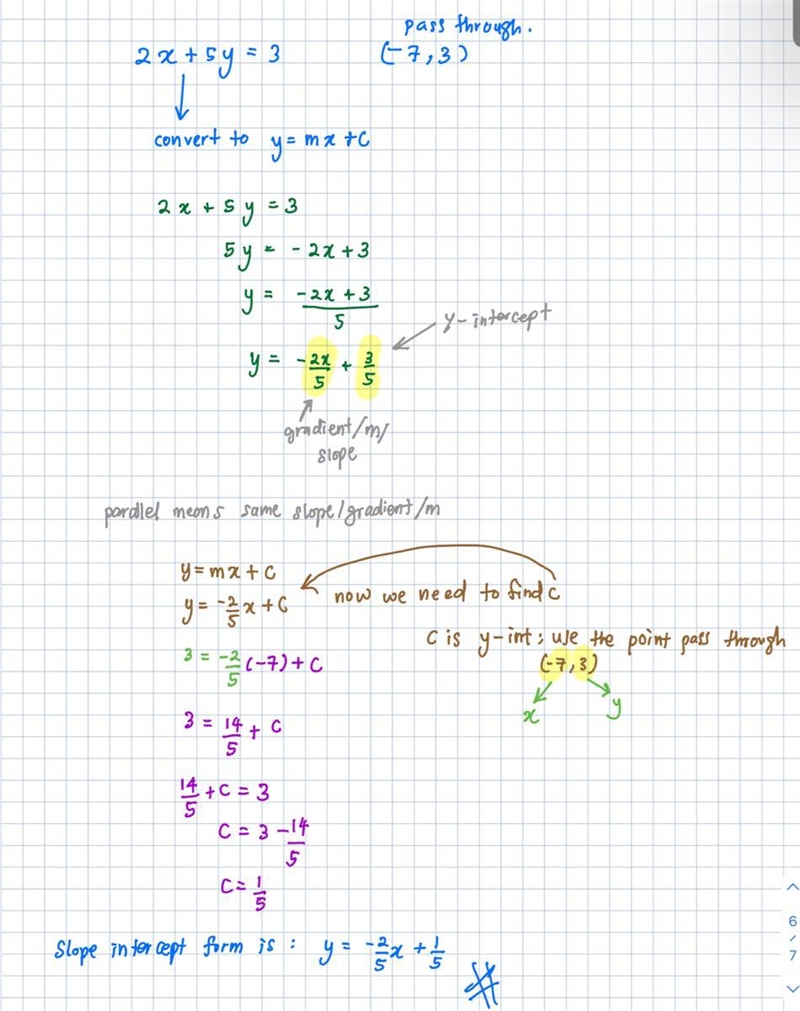 pass through.
2x + 5y = 3 (-7, 3)
convert to y = mx + c
2x + 5y = 3
5y = -2x + 3
y = \frac{-2x + 3}{5}
y-intercept
y = -\frac{2x}{5} + \frac{3}{5}
gradient/m/
slope
parallel means same slope/gradient/m
y = mx + c
now we need to find c
y = -\frac{2}{5}x + c
c is y-int : use the point pass through
(-7, 3)
3 = \frac{-2}{5}(-7) + c
x y
3 = \frac{14}{5} + c
\frac{14}{5} + c = 3
c = 3 - \frac{14}{5}
c = \frac{1}{5}
Slope intercept form is : y = -\frac{2}{5}x + \frac{1}{5}
6
/
7